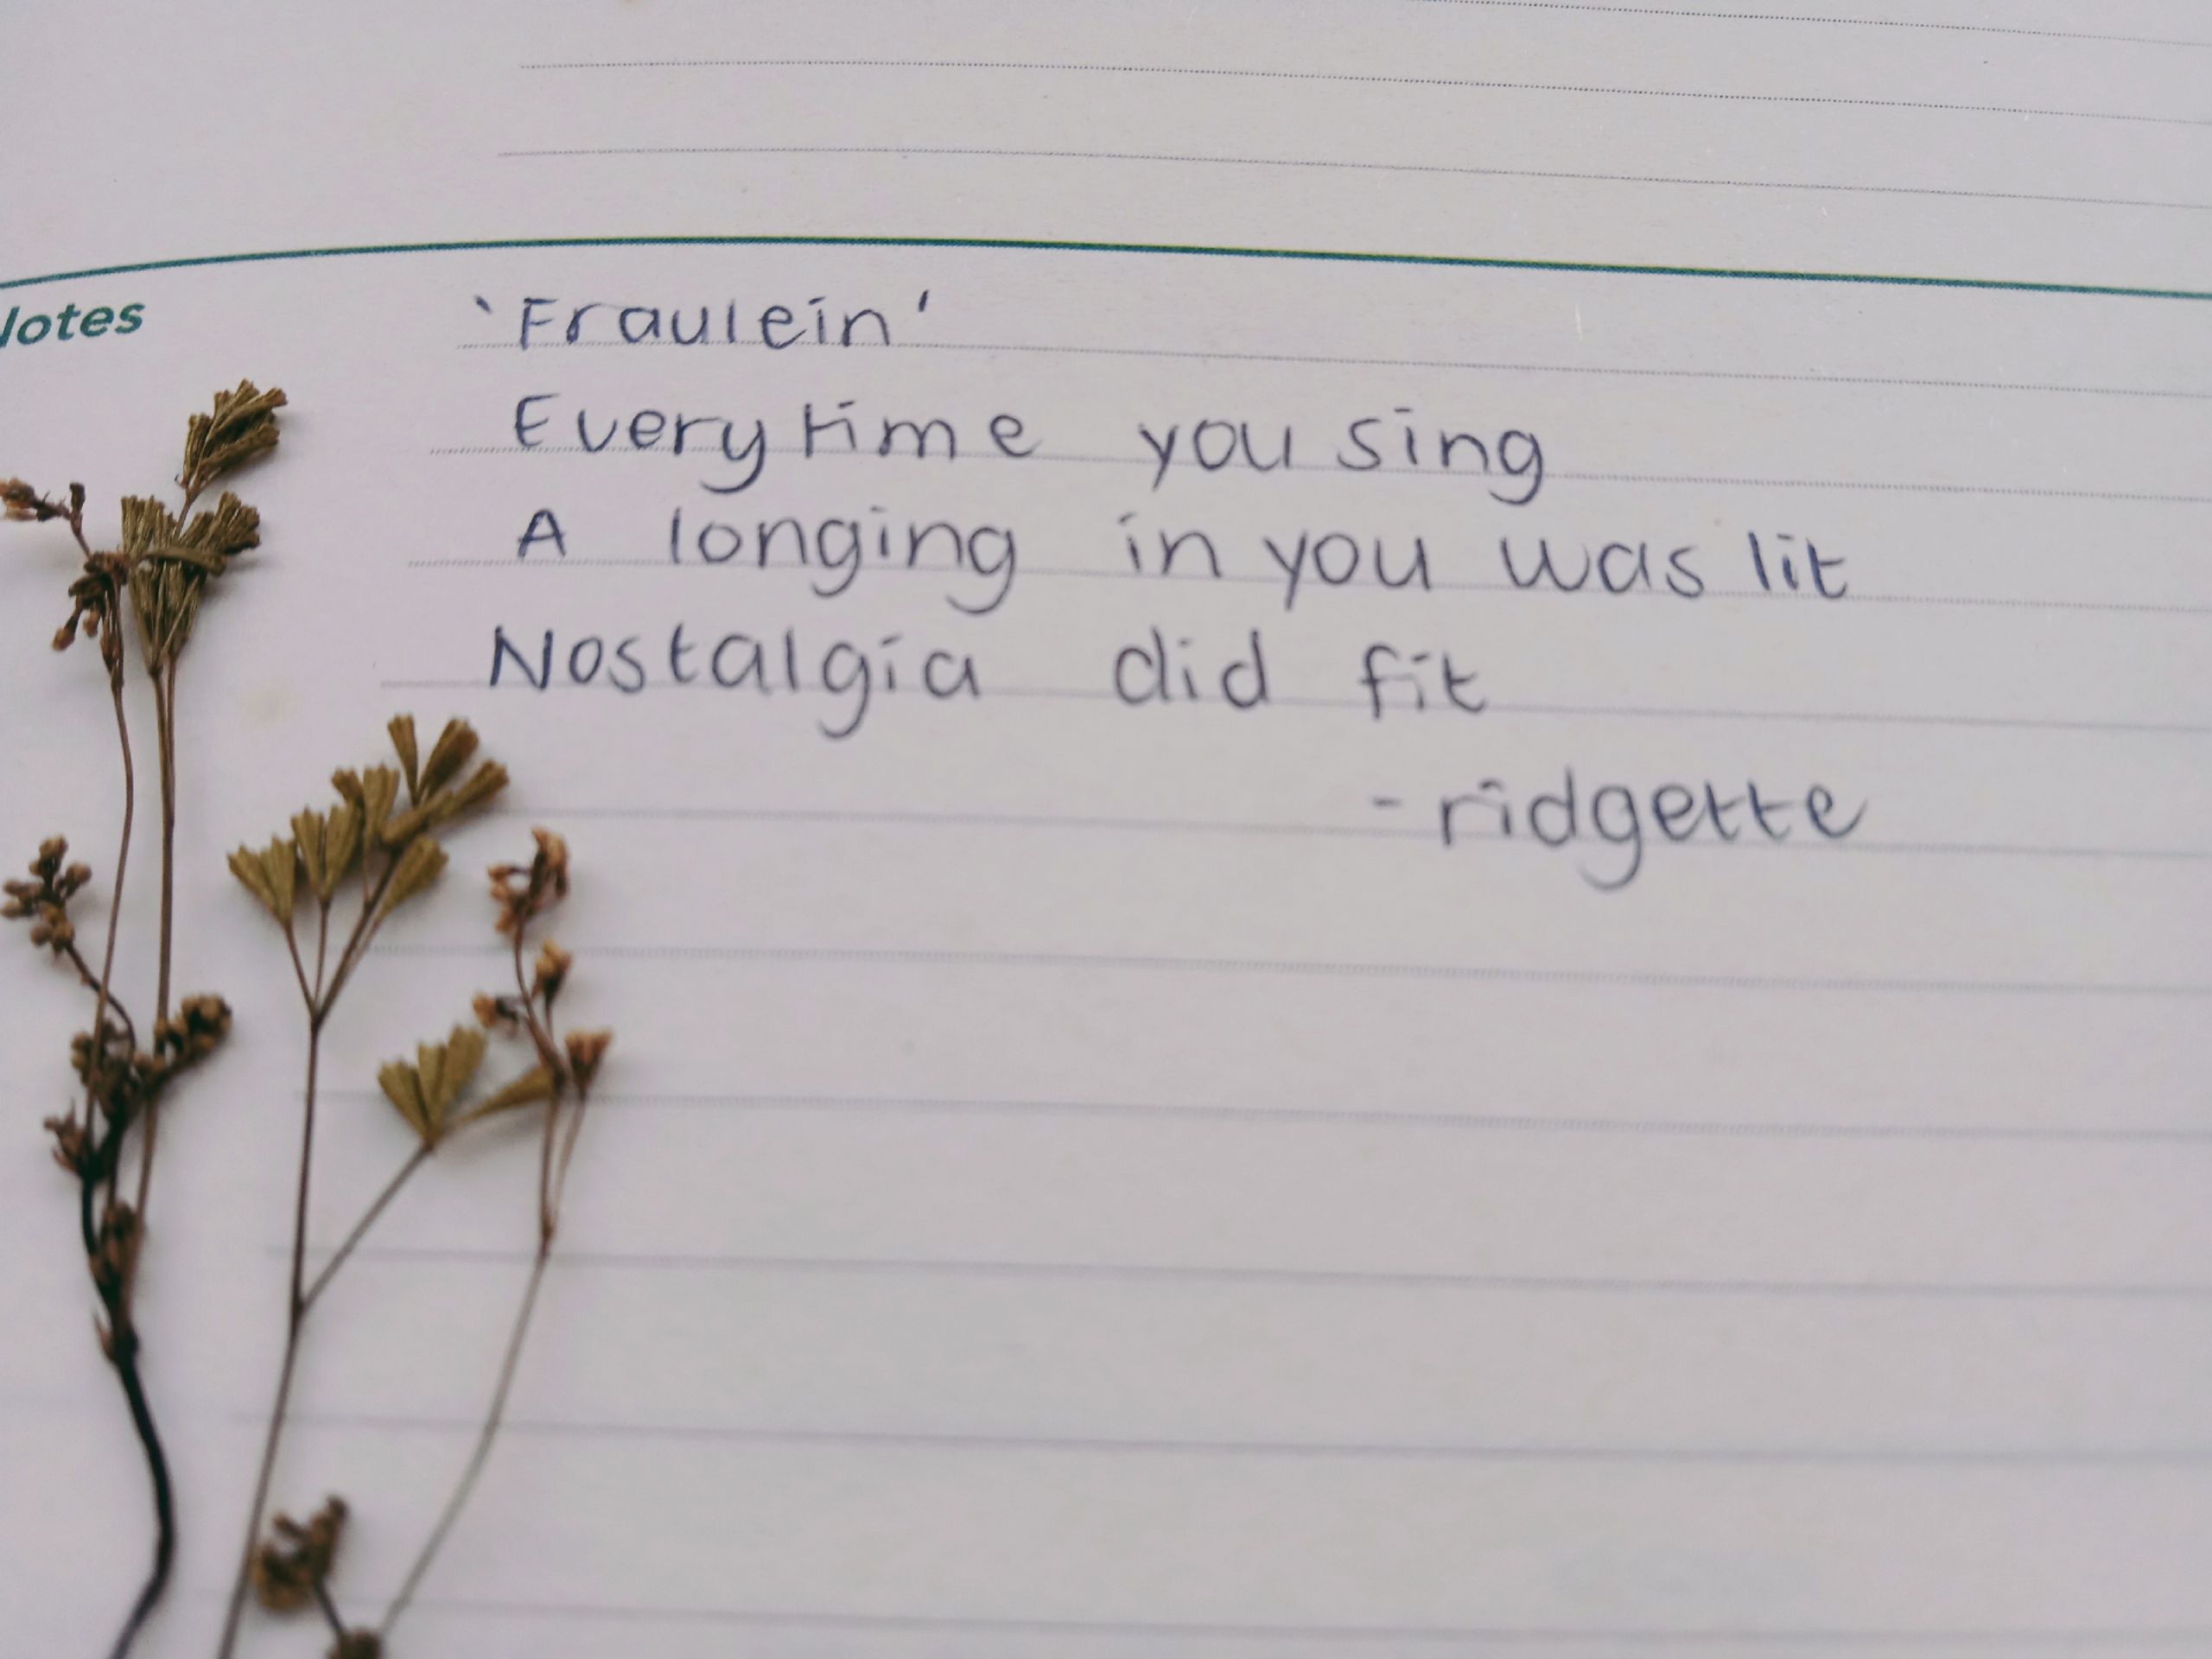 Notes
'Fraulein'
Everytime you sing
A longing in you was lit
Nostalgia did fit
-ridgette